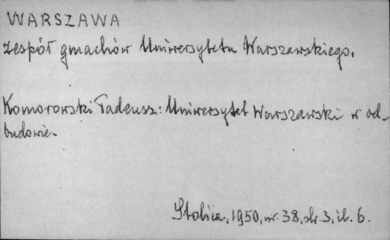 WARSZAWA
Zespół gmachów Uniwersytetu Warszawskiego.
Komorowski Tadeusz: Uniwersytet Warszawski w od-
budowie.
Stolica, 1950, nr. 38, str. 3, il. 6.